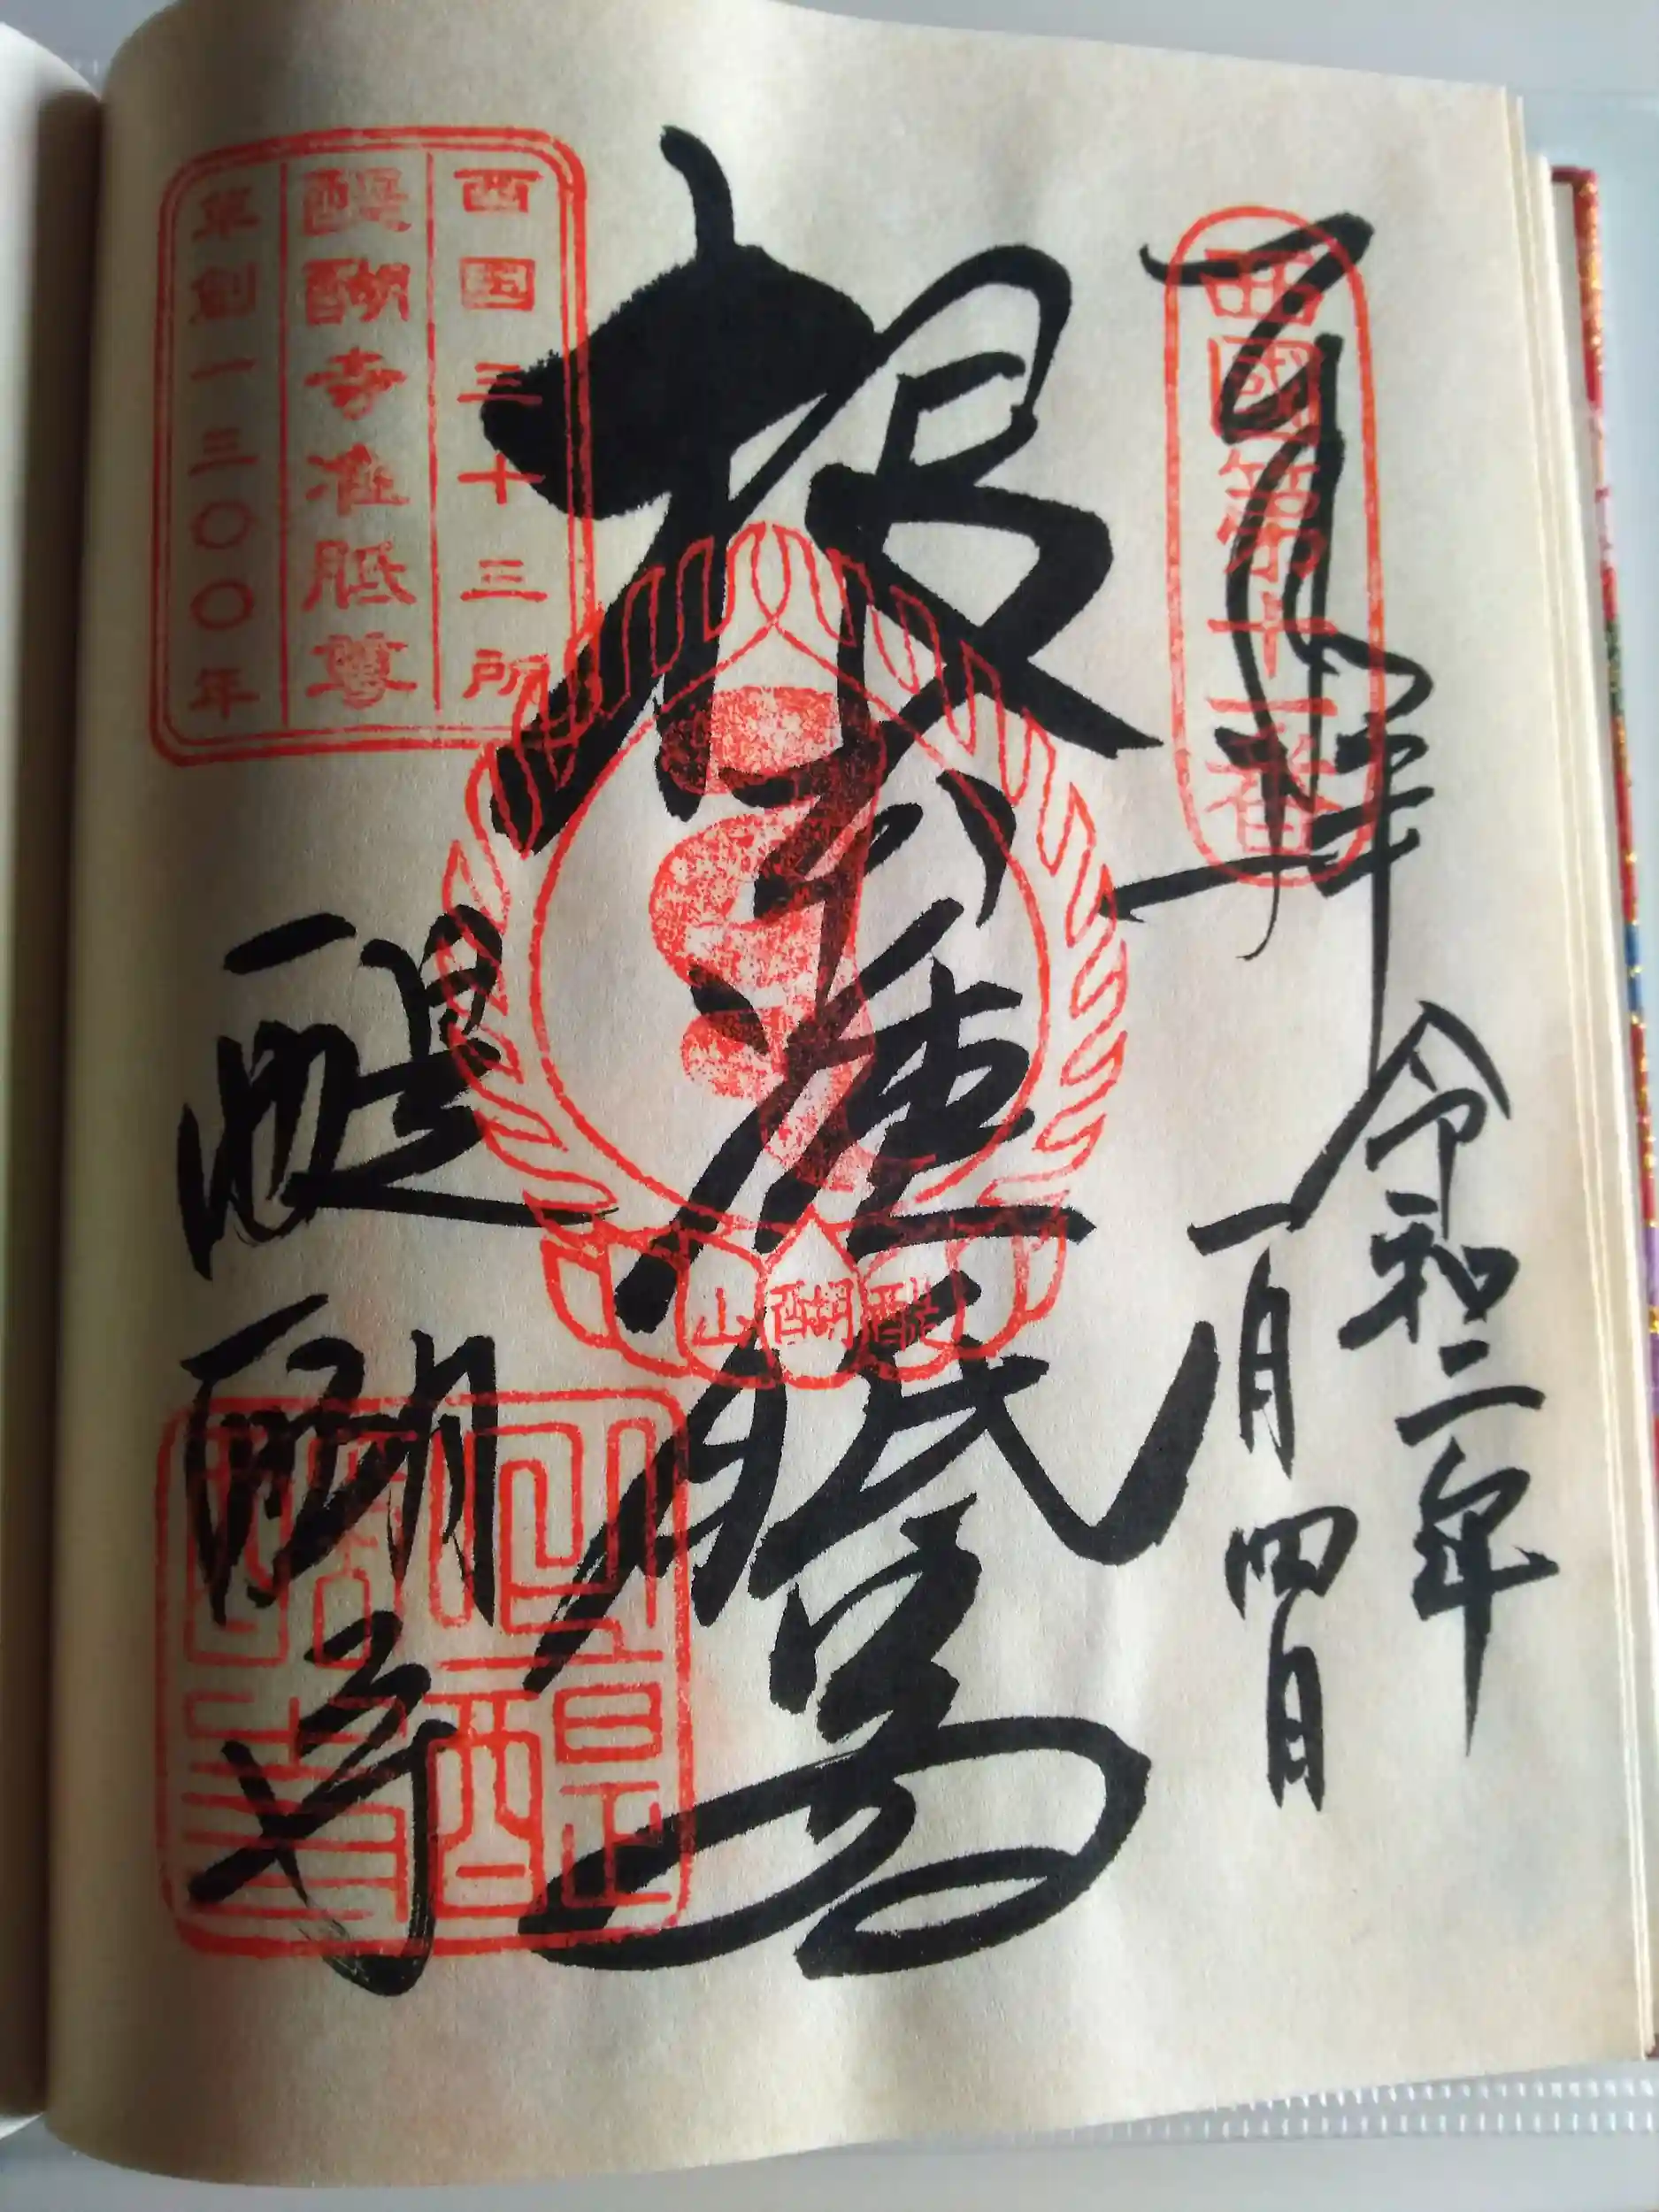 奉拝
西國第十一番
令和二年
一月四日
根本准胝尊
醍醐山
西国三十三所
醍醐寺准胝尊
草創一三〇〇年
醍醐寺